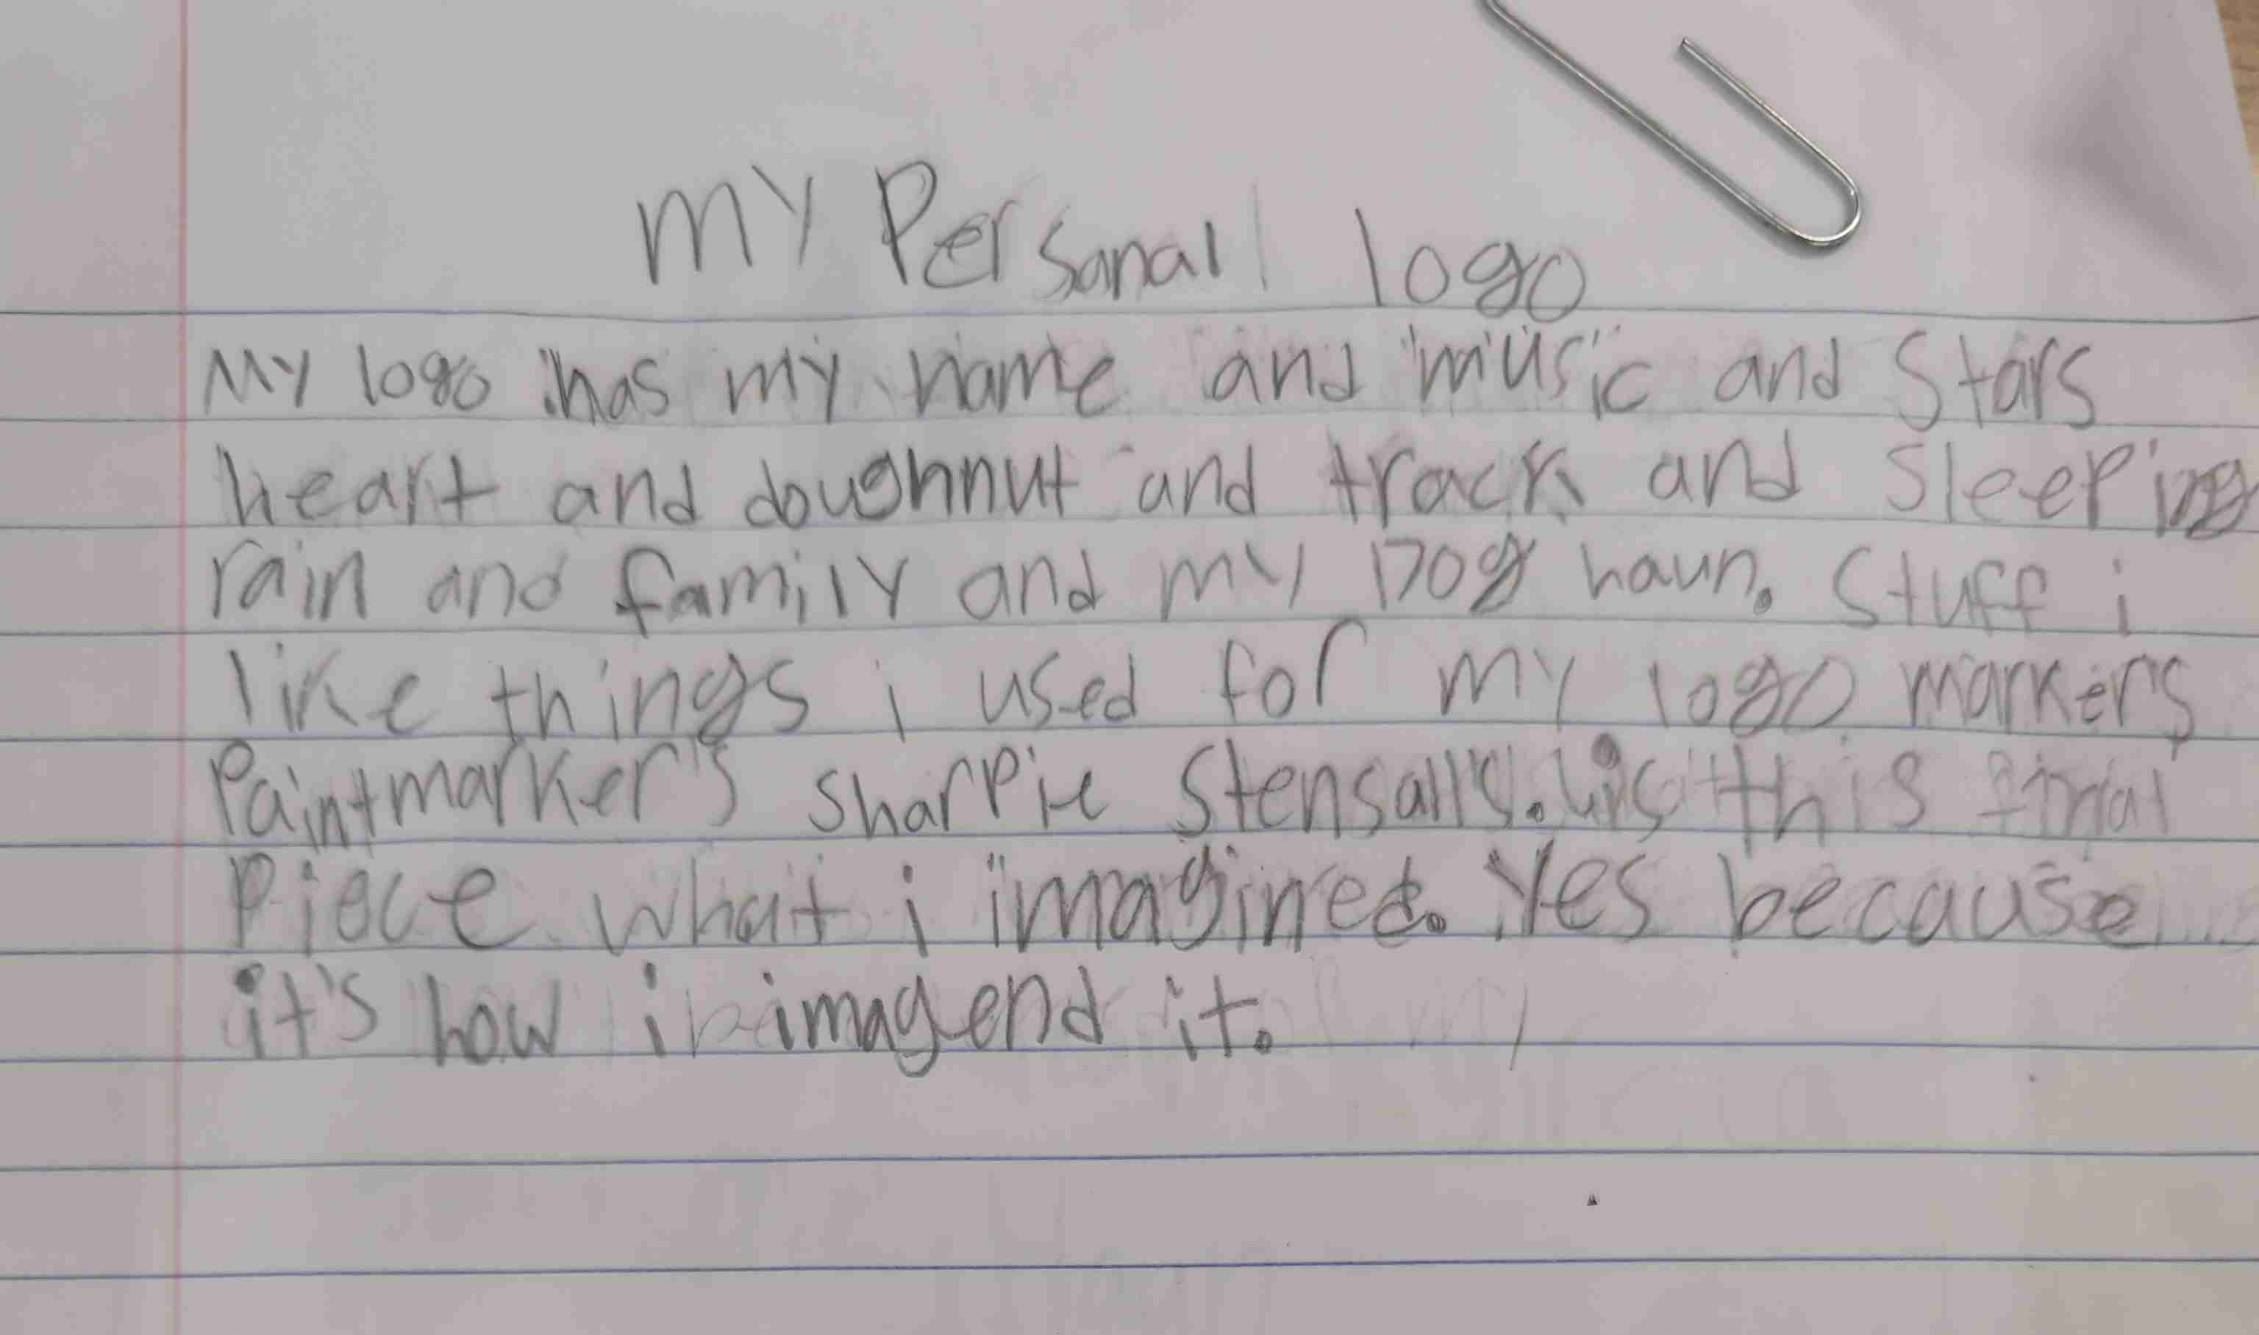 My Personal logo
My logo has my name and music and Stars
heart and doughnut and track and Sleeping
rain and family and my Dog haun. Stuff i
like things i used for my logo markers
Paintmarker's sharpie Stensall's. is this final
Piece what i imagined. Yes because
it's how i imagend it.